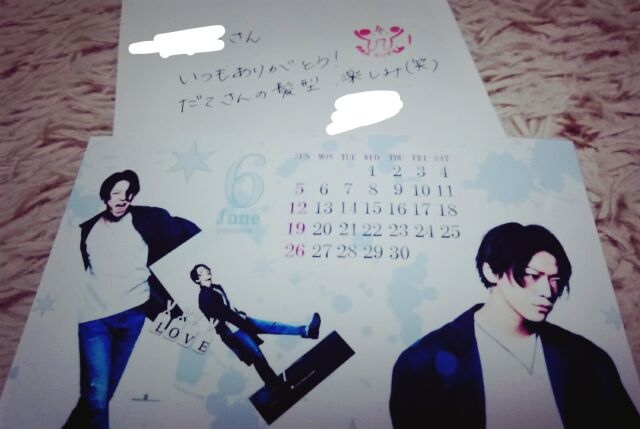 さん
いつもありがとう!
だてさんの髪型 楽しみ(笑)
6
June
SUN MON TUE WED THU FRI SAT
1 2 3 4
5 6 7 8 9 10 11
12 13 14 15 16 17 18
19 20 21 22 23 24 25
26 27 28 29 30
LOVE